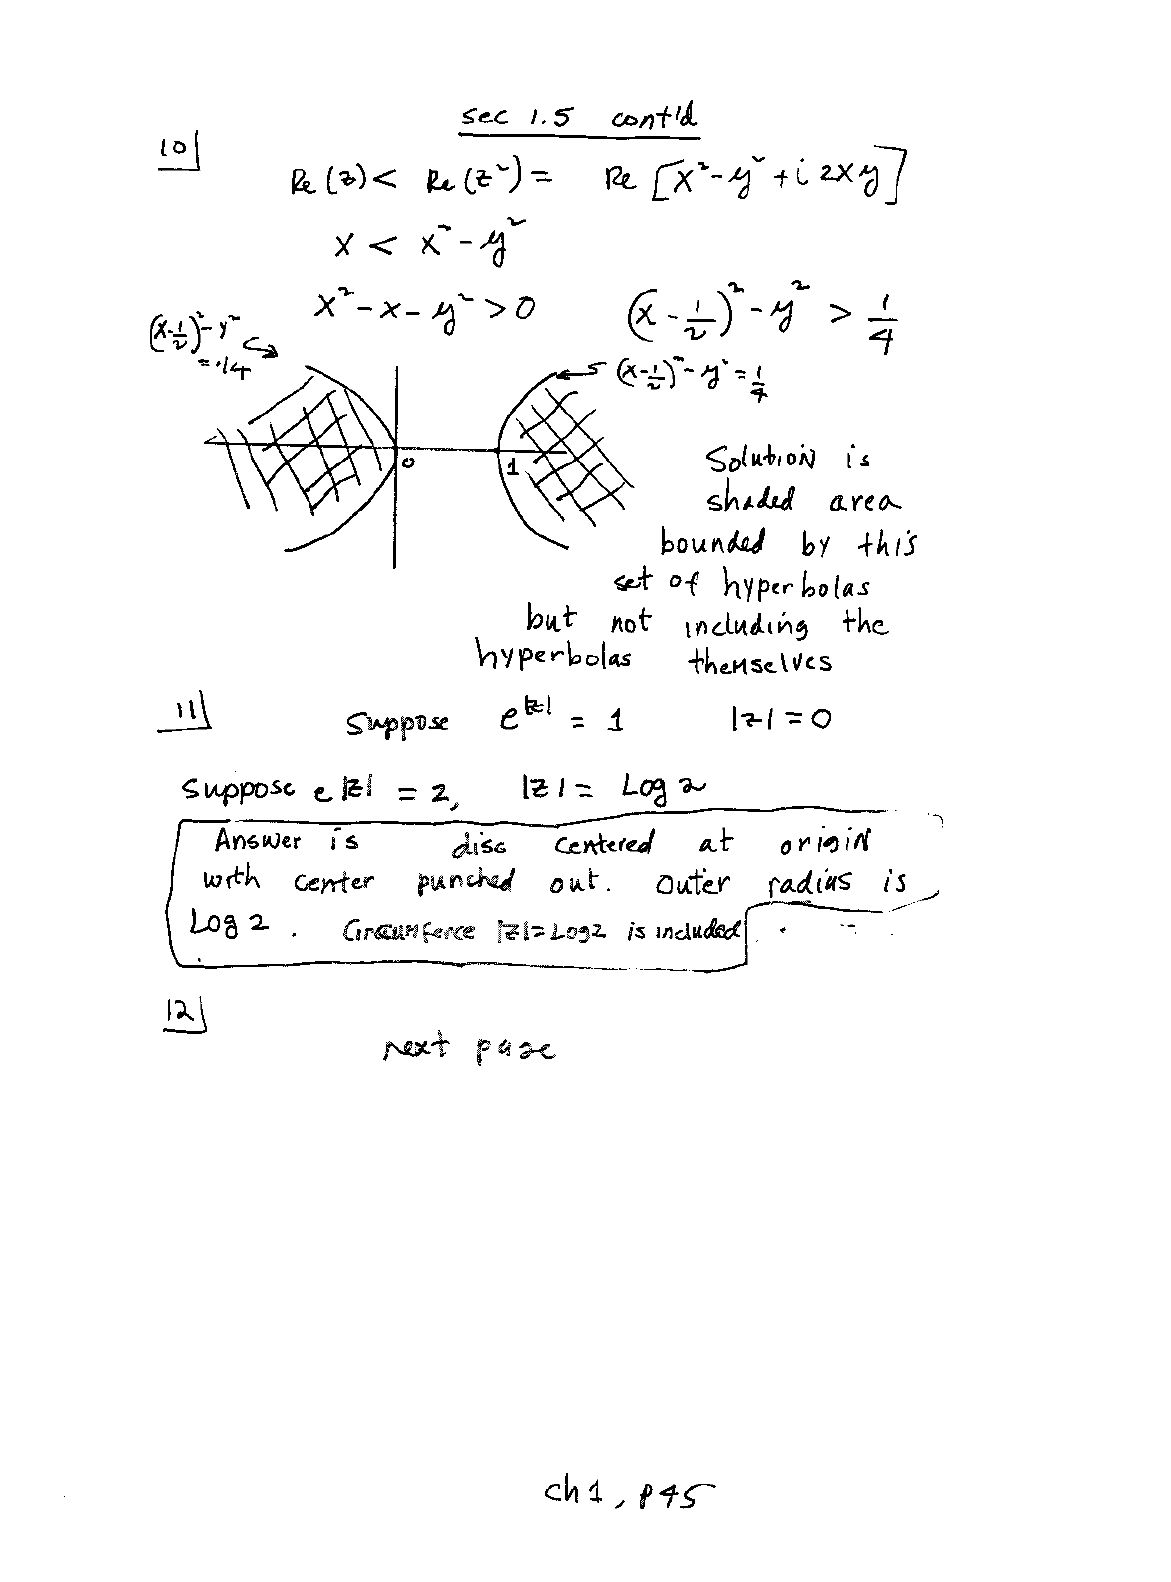 sec 1.5 cont'd
10
Re(z) < Re(z²) = Re [x²-y²+i2xy]
x < x²-y²
x²-x-y²>0 (x-1/2)²-y² > 1/4
(x-1/2)²-y²
=1/4
(x-1/2)²-y²=1/4
0 1
Solution is
shaded area
bounded by this
set of hyperbolas
but not including the
hyperbolas themselves
11 suppose e^|z| = 1 |z|=0
suppose e|z| = 2, |z| = Log 2
Answer is disc centered at origin
with center punched out. Outer radius is
Log 2. Circumference |z|=Log2 is included
12
next page
ch1, p45